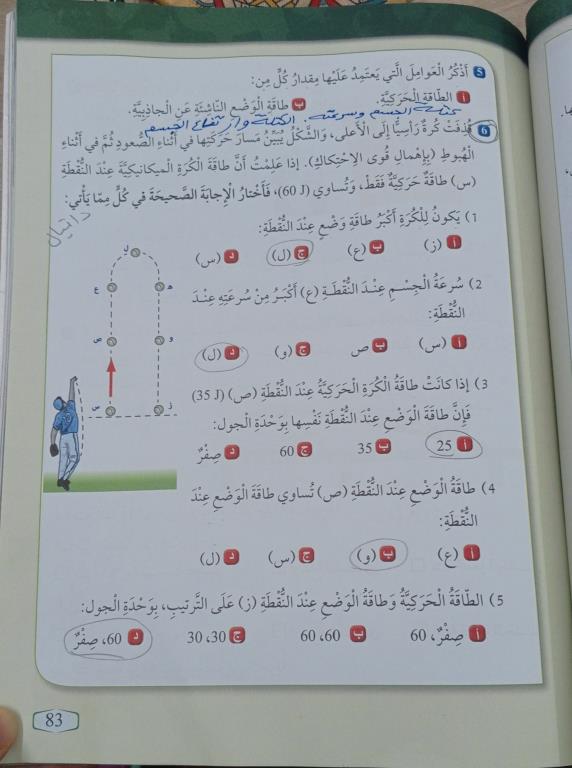 5 أَذْكُرُ الْعَوامِلَ الَّتي يَعْتَمِدُ عَلَيْها مِقدارُ كُلٍّ مِن:
أ الطّاقَةِ الْحَرَكِيَّةِ. ب طاقَةِ الْوَضْعِ النّاشِئَةِ عَنِ الْجاذِبِيَّةِ.
كتلة الجسم وسرعته. الكتلة وارتفاع الجسم
6 قُذِفَتْ كُرَةٌ رَأْسِيًّا إِلَى الْأَعلى، وَالشَّكْلُ يُبَيِّنُ مَسارَ حَرَكَتِها في أَثْناءِ الصُّعودِ ثُمَّ في أَثْناءِ
الْهُبوطِ (بِإِهْمالِ قُوى الِاحْتِكاكِ). إذا عَلِمْتُ أَنَّ طاقَةَ الْكُرَةِ الْميكانيكِيَّةَ عِنْدَ النُّقْطَةِ
(س) طاقَةٌ حَرَكِيَّةٌ فَقَطْ، وَتُساوي (60 J)، فَأَخْتارُ الْإِجابَةَ الصَّحيحَةَ في كُلٍّ مِمّا يَأْتي:
1) يَكونُ لِلْكُرَةِ أَكْبَرُ طاقَةِ وَضْعٍ عِنْدَ النُّقْطَةِ:
أ (ز) ب (ع) ج (ل) د (س)
2) سُرعَةُ الْجِسْمِ عِنْدَ النُّقْطَةِ (ع) أَكْبَرُ مِنْ سُرعَتِهِ عِنْدَ
النُّقْطَةِ:
أ (س) ب ص ج (و) د (ل)
3) إذا كانَتْ طاقَةُ الْكُرَةِ الْحَرَكِيَّةُ عِنْدَ النُّقْطَةِ (ص) (35 J)
فَإِنَّ طاقَةَ الْوَضْعِ عِنْدَ النُّقْطَةِ نَفْسِها بِوَحْدَةِ الجول:
أ 25 ب 35 ج 60 د صِفْرٌ
4) طاقَةُ الْوَضْعِ عِنْدَ النُّقْطَةِ (ص) تُساوي طاقَةَ الْوَضْعِ عِنْدَ
النُّقْطَةِ:
أ (ع) ب (و) ج (س) د (ل)
5) الطّاقَةُ الْحَرَكِيَّةُ وَطاقَةُ الْوَضْعِ عِنْدَ النُّقْطَةِ (ز) عَلَى التَّرتيبِ، بِوَحْدَةِ الْجول:
أ صِفْرٌ، 60 ب 60، 60 ج 30، 30 د 60، صِفْرٌ
ل
ع
هـ
ص
و
س
ز
83